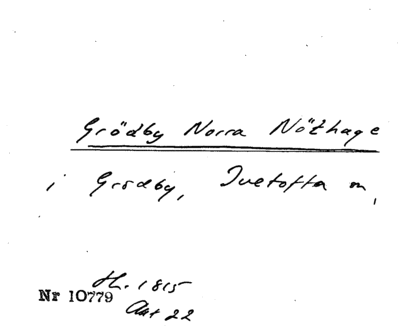 Grödby Norra Nöthage
i Grödby, Ivetofta m,
H. 1815
Nr 10779
Akt 22